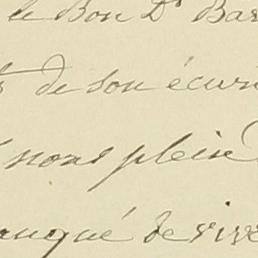 le Bon Dr Bar
de son écuri
nous pleine
anqué de vive